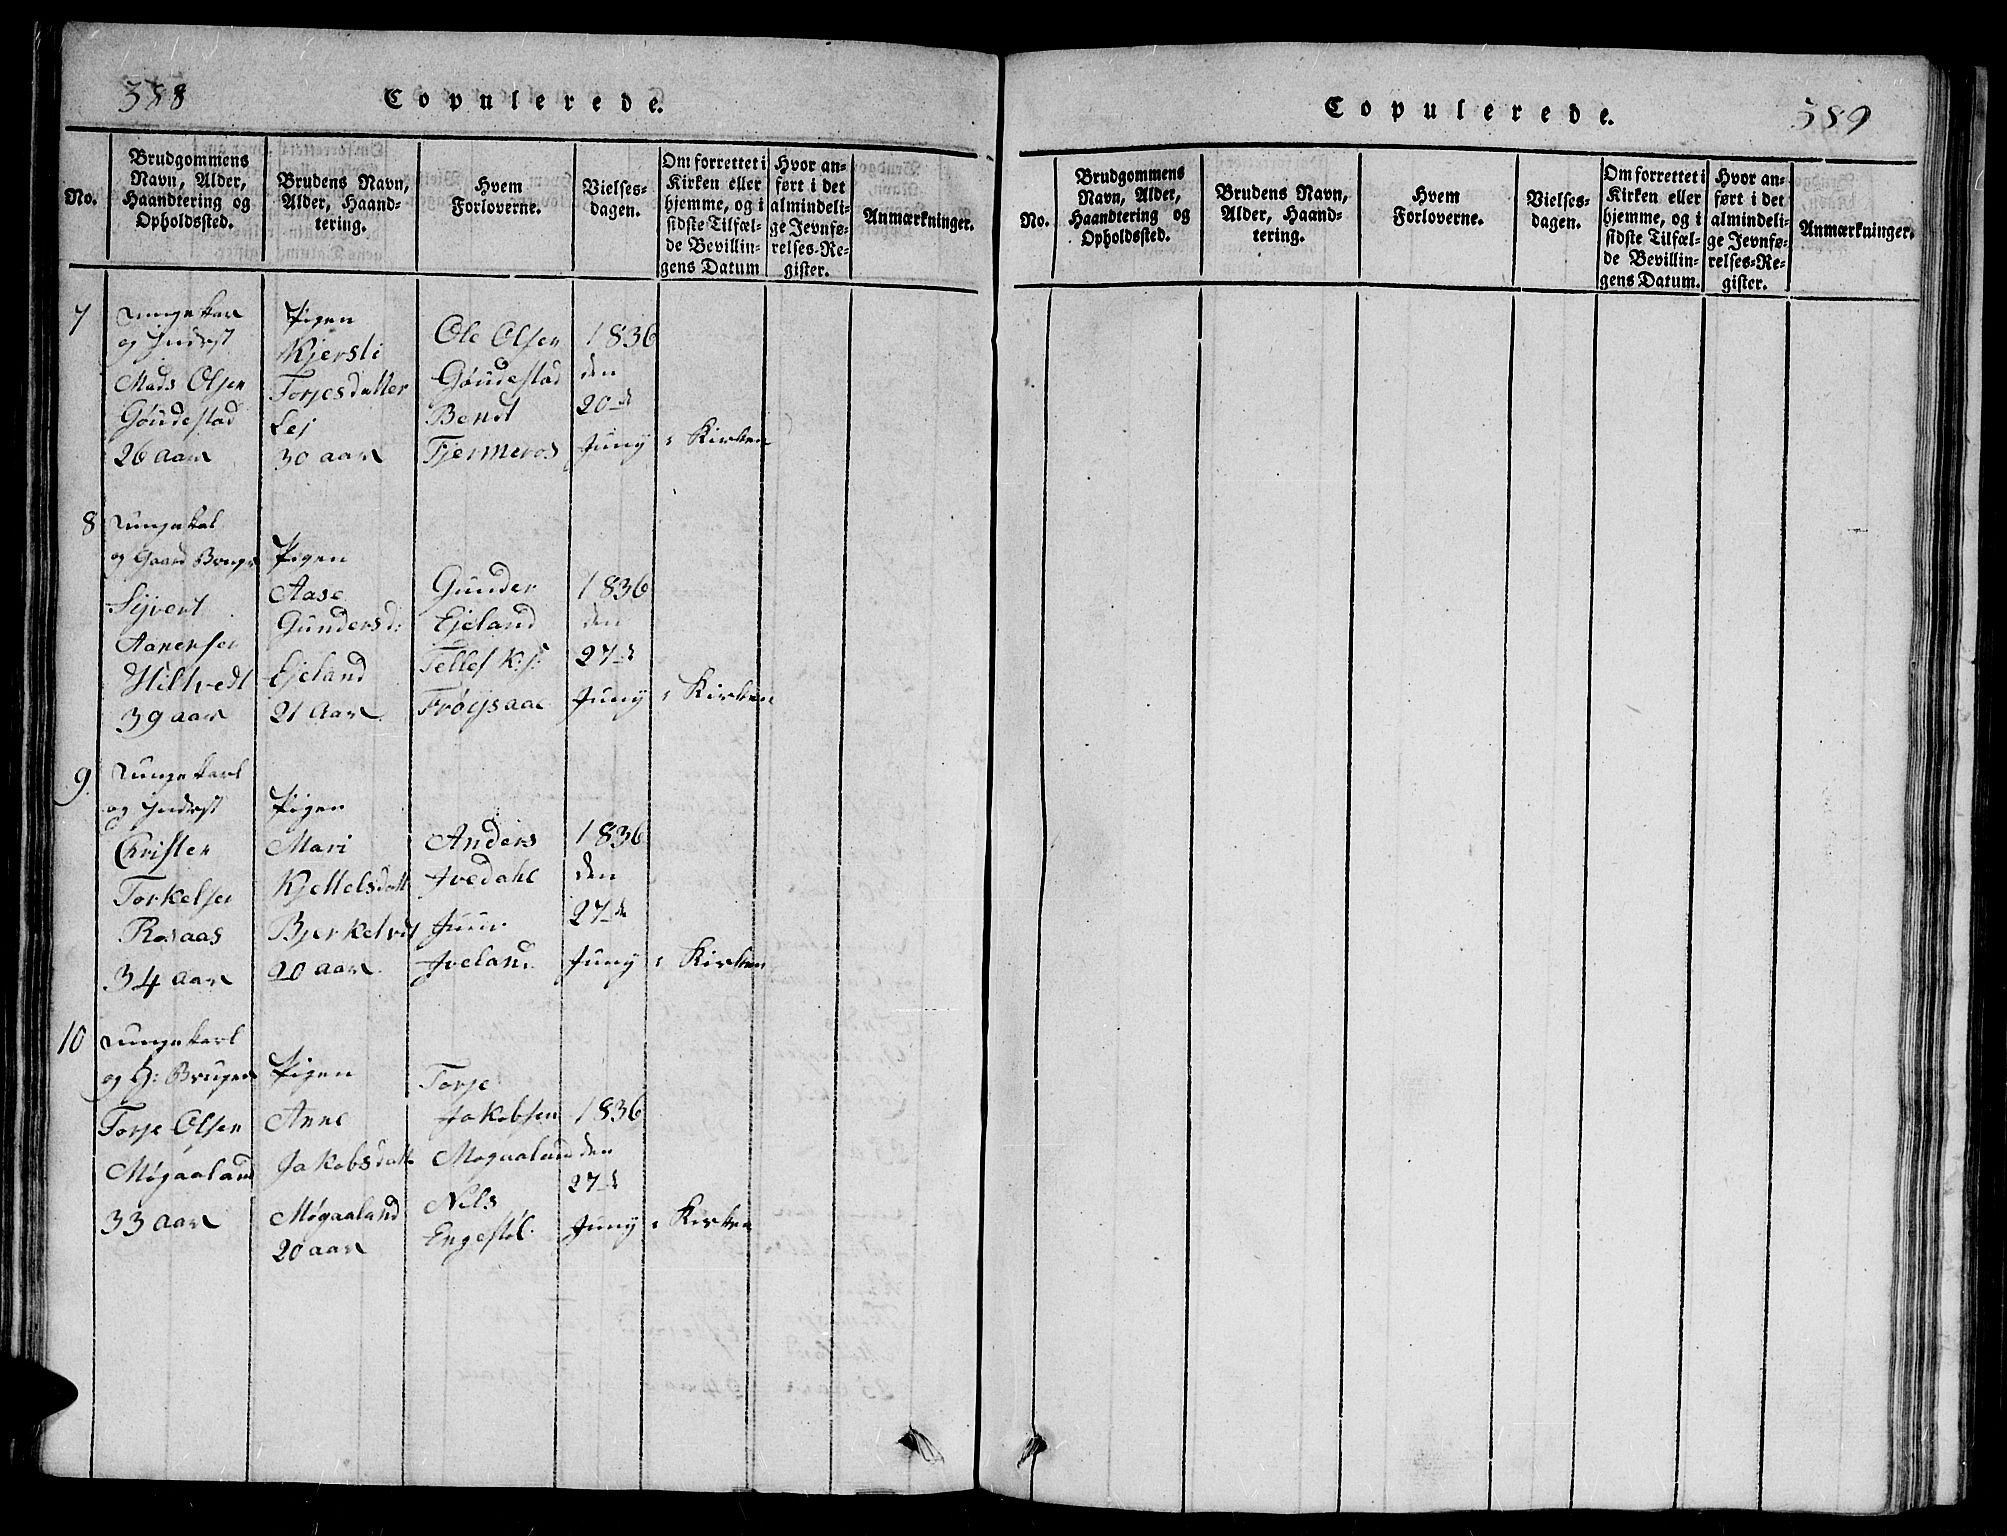 388
Copulerede.
No.
Brudgommens Navn, Alder, Haandtering og Opholdssted.
Brudens Navn, Alder, Haandtering.
Hvem Forloverne.
Vielsesdagen.
Om forrettet i Kirken eller hjemme, og i sidste Tilfælde Bevillingens Datum
Hvor anført i det almindelige Jevnførelses-Register.
Anmærkninger.
7
Ungekar
og Inderst
Mads Olsen
Göudestad
26 aar
Pigen
Kjersti
Torjesdatter
Lej
30 aar
Ole Olsen
Göudestad
Bendt
Fjermeros
1836
den
20de
Juny
i Kirken
8
Ungekal
og Gaard Bruger
Syvert
Aanensen
Hiltvedt
39 aar
Pigen
Aase
Gundersd:
Ejeland
21 Aar
Gunder
Ejeland
Tellef K:s:
Fröysaae
1836
den
27de
Juny
i Kirken
9
Ungekarl
og Inderst
Christen
Torkelsen
Rosaas
34 aar
Pigen
Mari
Kjettelsdatt
Bjerkelvet
20 aar
Anders
Ivedahl
Juur
Iveland
1836
den
27de
Juny
i Kirken
10
Ungekarl
og G: Bruger
Torje Olsen
Møgaaland
33 aar
Pigen
Anne
Jakobsdatt
Møgaaland
20 aar
Torje
Jakobsen
Mogaaland
Nils
Engestöl
1836
den
27de
Juny
i Kirken
Copulerede.
389
No.
Brudgommens Navn, Alder, Haandtering og Opholdssted.
Brudens Navn, Alder, Haandtering.
Hvem Forloverne.
Vielsesdagen.
Om forrettet i Kirken eller hjemme, og i sidste Tilfælde Bevillingens Datum.
Hvor anført i det almindelige Jevnførelses-Register.
Anmærkninger.